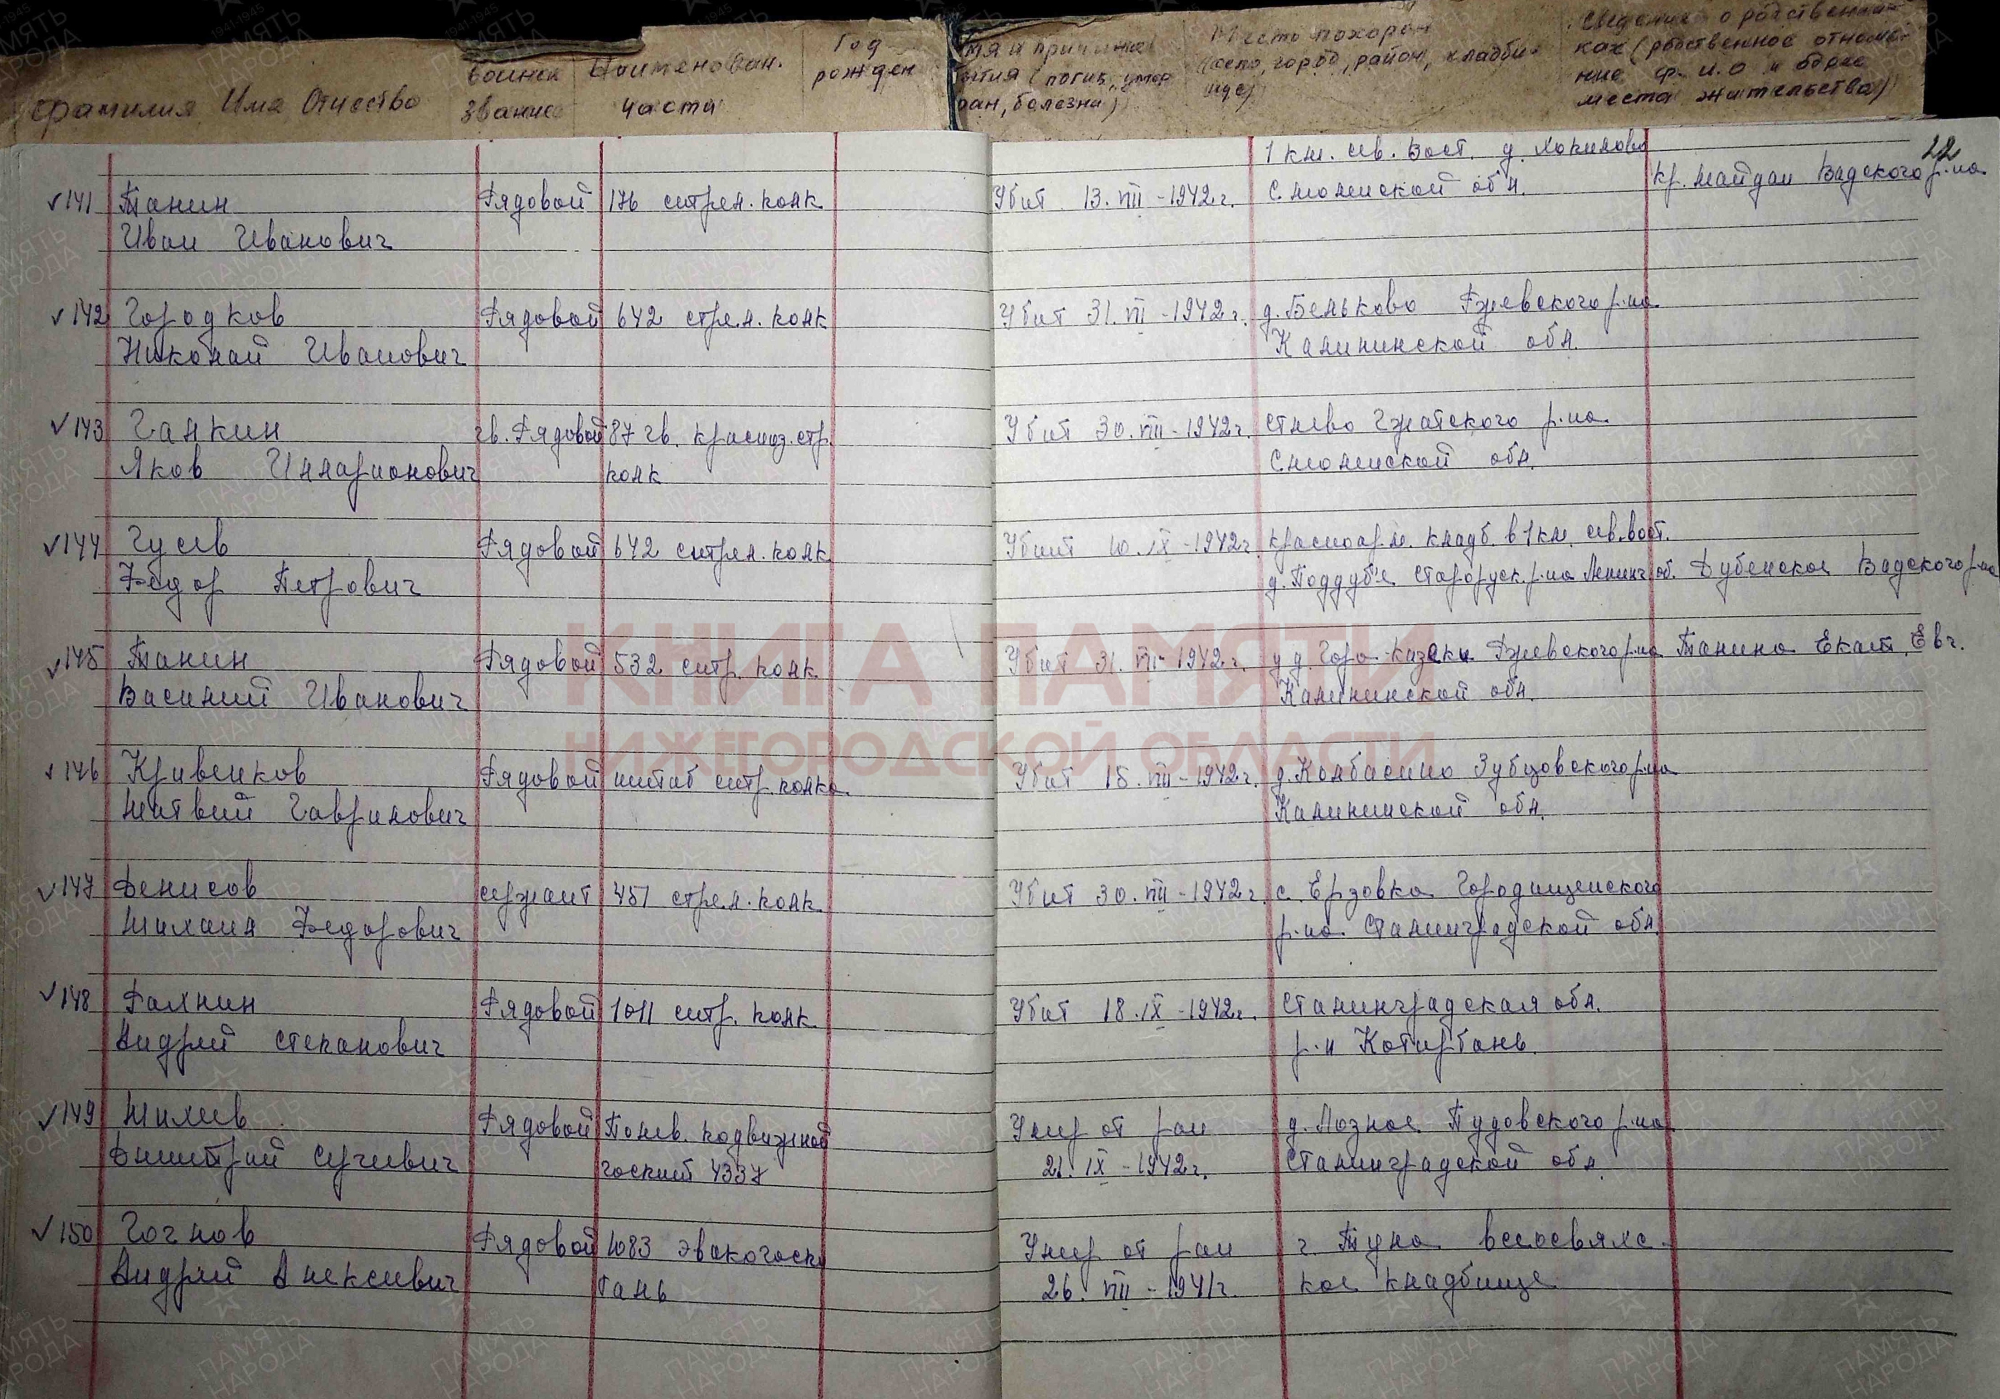 Фамилия Имя Отчество
воинск звание
Наименован. части
Год рожден
мя и причина
бытия (погиб, умер
ран, болезни)
Место похорон
(село, город, район, кладби-
ще)
Сведения о родственни-
ках (родственное отноше-
ние ф.и.о и адрес
места жительства)
22
1 км. сев. вост. д.
141 Танин Рядовой 176 стрел. полк Убит 13. VIII - 1942 г. Смоленской обл. Кр. Майдан Вадского р-на
Иван Иванович
142 Городков Рядовой 642 стрел. полк Убит 31. VIII - 1942 г. д. Беньково Ржевского р-на
Николай Иванович Калининской обл.
143 Галкин гв. Рядовой 87 гв. краснозн. стр. Убит 30. VIII - 1942 г. Гжатского р-на
Яков Илларионович полк Смоленской обл.
144 Гусев Рядовой 642 стрел. полк Убит 10. IX - 1942 г. красноарм. кладб. в 1 км. сев. вост.
Федор Петрович д. Поддубье Старорус. р-на Ленинг. об. Дубенское Вадского р-на
145 Танин Рядовой 532 стр. полк Убит 31. VIII - 1942 г. у д. Горы-Казеки Ржевского р-на Танина Екат. Евг.
Василий Иванович Калининской обл.
146 Кривенков Рядовой штаб стр. полка Убит 15. VIII - 1942 г. д. Колбасино Зубцовского р-на
Матвей Гаврилович Калининской обл.
147 Денисов сержант 451 стрел. полк Убит 30. VIII - 1942 г. с. Ерзовка Городищенского
Михаил Федорович р-на Сталинградской обл.
148 Рядовой 1011 стр. полк Убит 18. IX - 1942 г. Сталинградская обл.
Андрей Степанович р-н Котлубань.
149 Рядовой Полев. подвижной Умер от ран д. Лозное р-на
Дмитрий Сергеевич госпит 4337 21. IX - 1942 г. Сталинградской обл
150 Рядовой 1083 эвакогосп Умер от ран г. Тула всесвятс-
Андрей Алексеевич 26. VIII - 1941 г. кое кладбище
КНИГА ПАМЯТИ
НИЖЕГОРОДСКОЙ ОБЛАСТИ
ПАМЯТЬ
НАРОДА